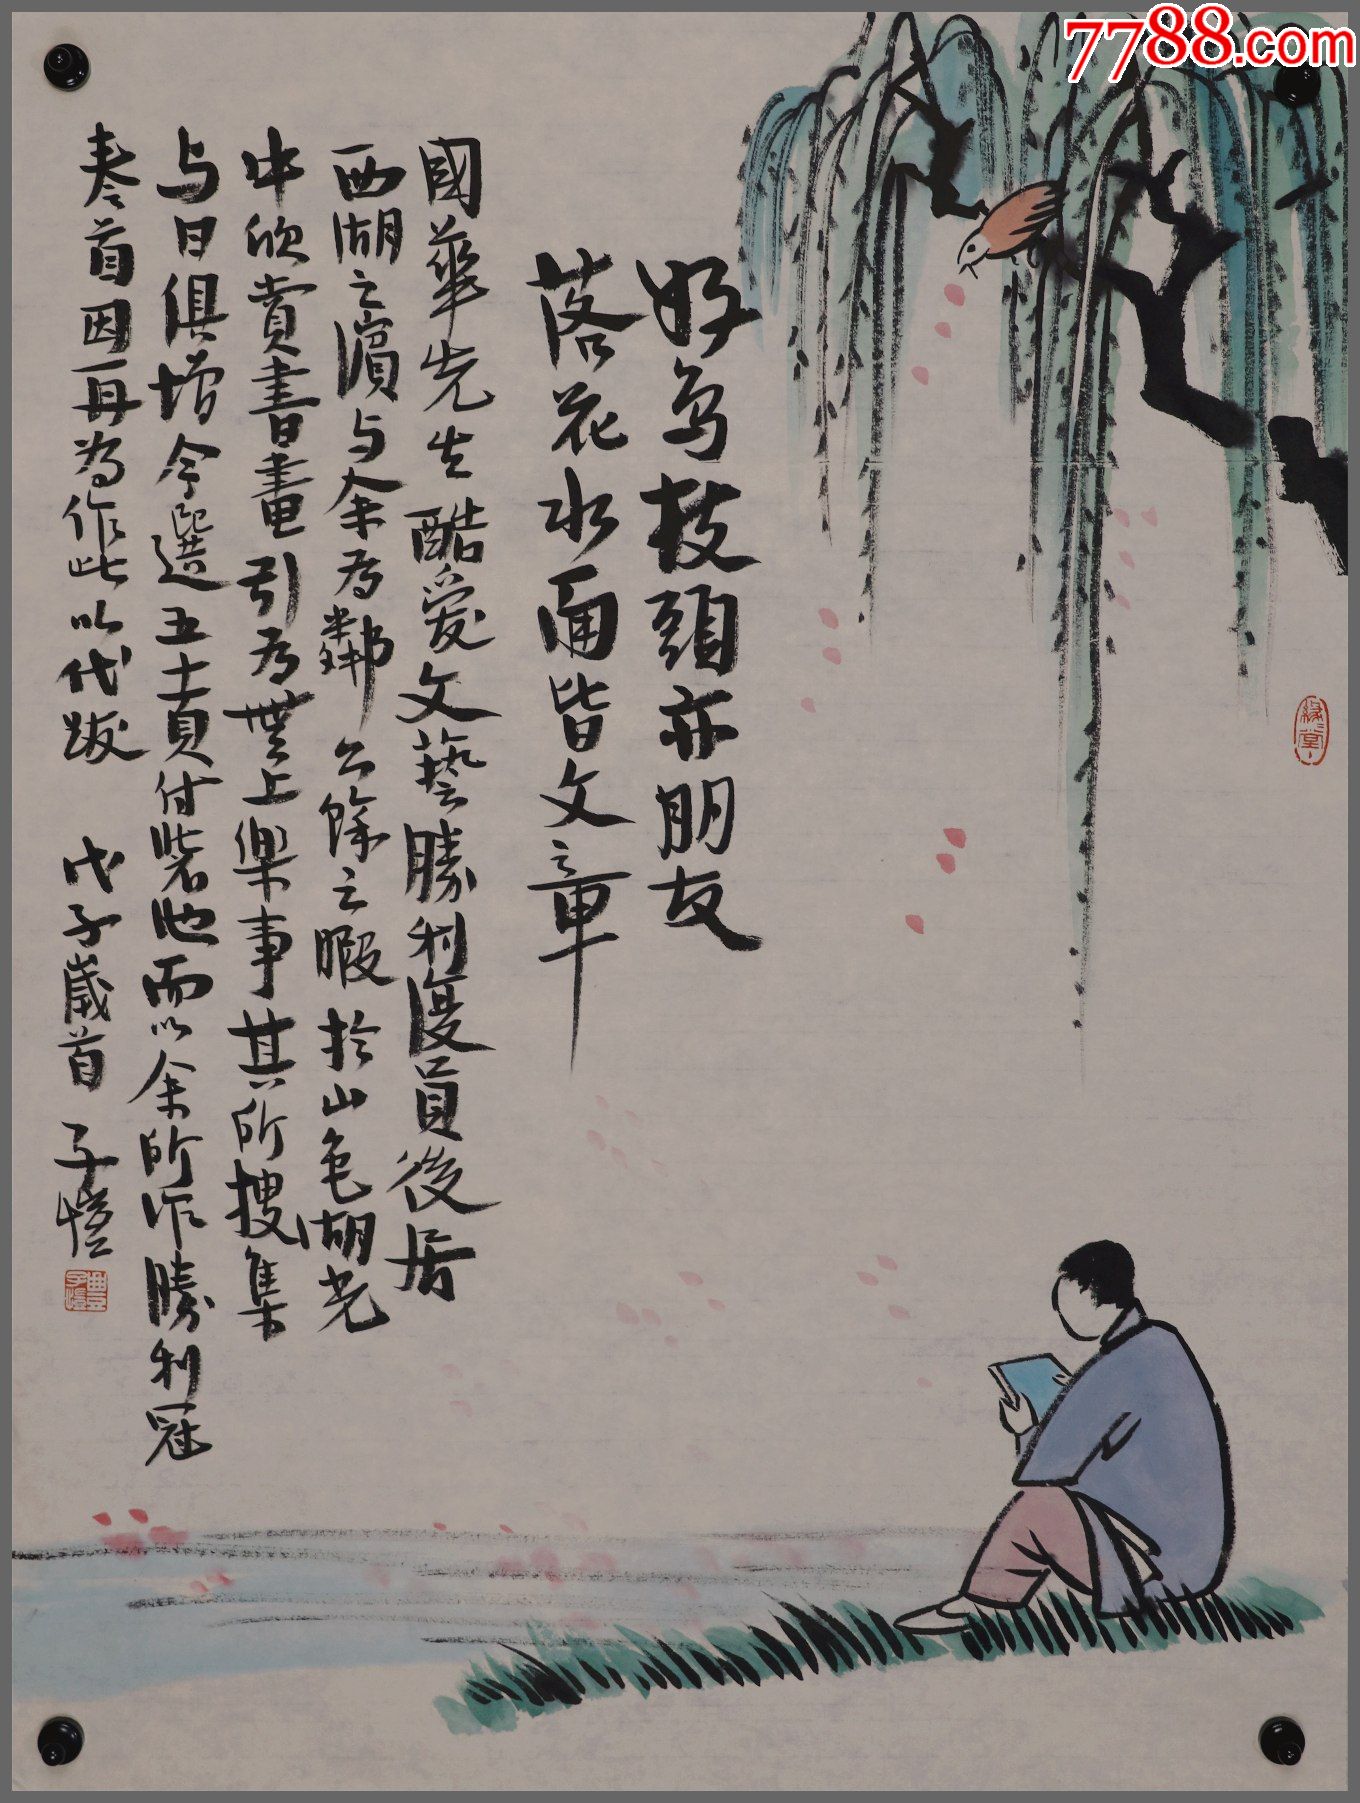 7788.com
好鸟枝頭亦朋友
落花水面皆文章
國華先生酷爱文藝勝利復員後居
西湖之濱与余为鄰公餘之暇於山色湖光
中欣赏書畫引为無上樂事其所搜集
与日俱增今選五十頁付裝池而以余所作勝利冠
卷首因再為作此以代跋 戊子歲首 子愷
豐子愷
緣緣堂